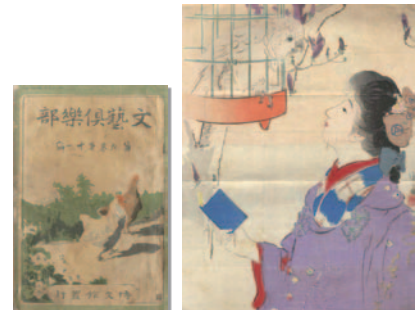 文藝俱樂部
博文館發行